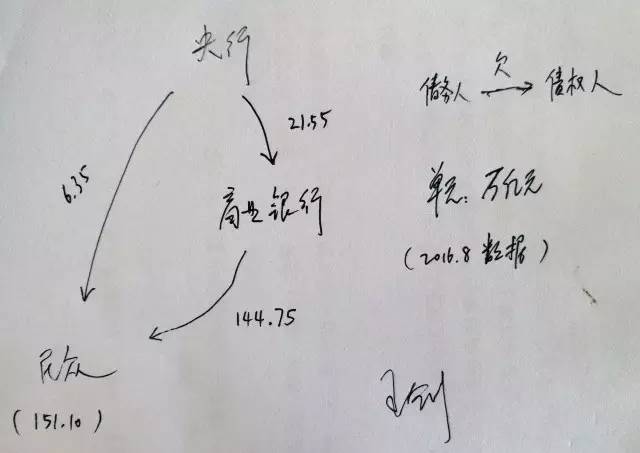 央行
债务人 欠 债权人
21.55
6.35
商业银行
单位: 万亿元
(2016.8 数据)
144.75
民众
(151.10)
王剑